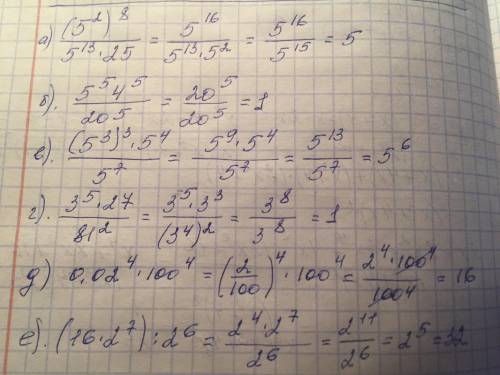 а) (5²)⁸ / 5¹³·25 = 5¹⁶ / 5¹³·5² = 5¹⁶ / 5¹⁵ = 5
б). 5⁵4⁵ / 20⁵ = 20⁵ / 20⁵ = 1
в). (5³)³·5⁴ / 5⁷ = 5⁹·5⁴ / 5⁷ = 5¹³ / 5⁷ = 5⁶
г). 3⁵·27 / 81² = 3⁵·3³ / (3⁴)² = 3⁸ / 3⁸ = 1
д) 0,02⁴·100⁴ = (2/100)⁴·100⁴ = 2⁴·100⁴ / 100⁴ = 16
е). (16·2⁷):2⁶ = 2⁴·2⁷ / 2⁶ = 2¹¹ / 2⁶ = 2⁵ = 32